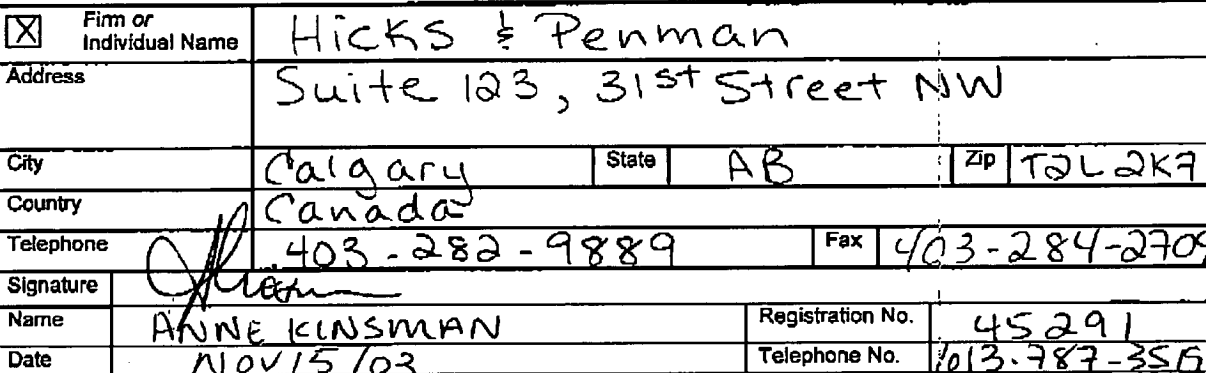 ☒ Firm or Individual Name Hicks & Penman
Address Suite 123, 31st Street NW
City Calgary State AB Zip T2L 2K7
Country Canada
Telephone 403-282-9889 Fax 403-284-2709
Signature
Name ANNE KINSMAN Registration No. 45291
Date NOV 15/03 Telephone No. 613-787-35